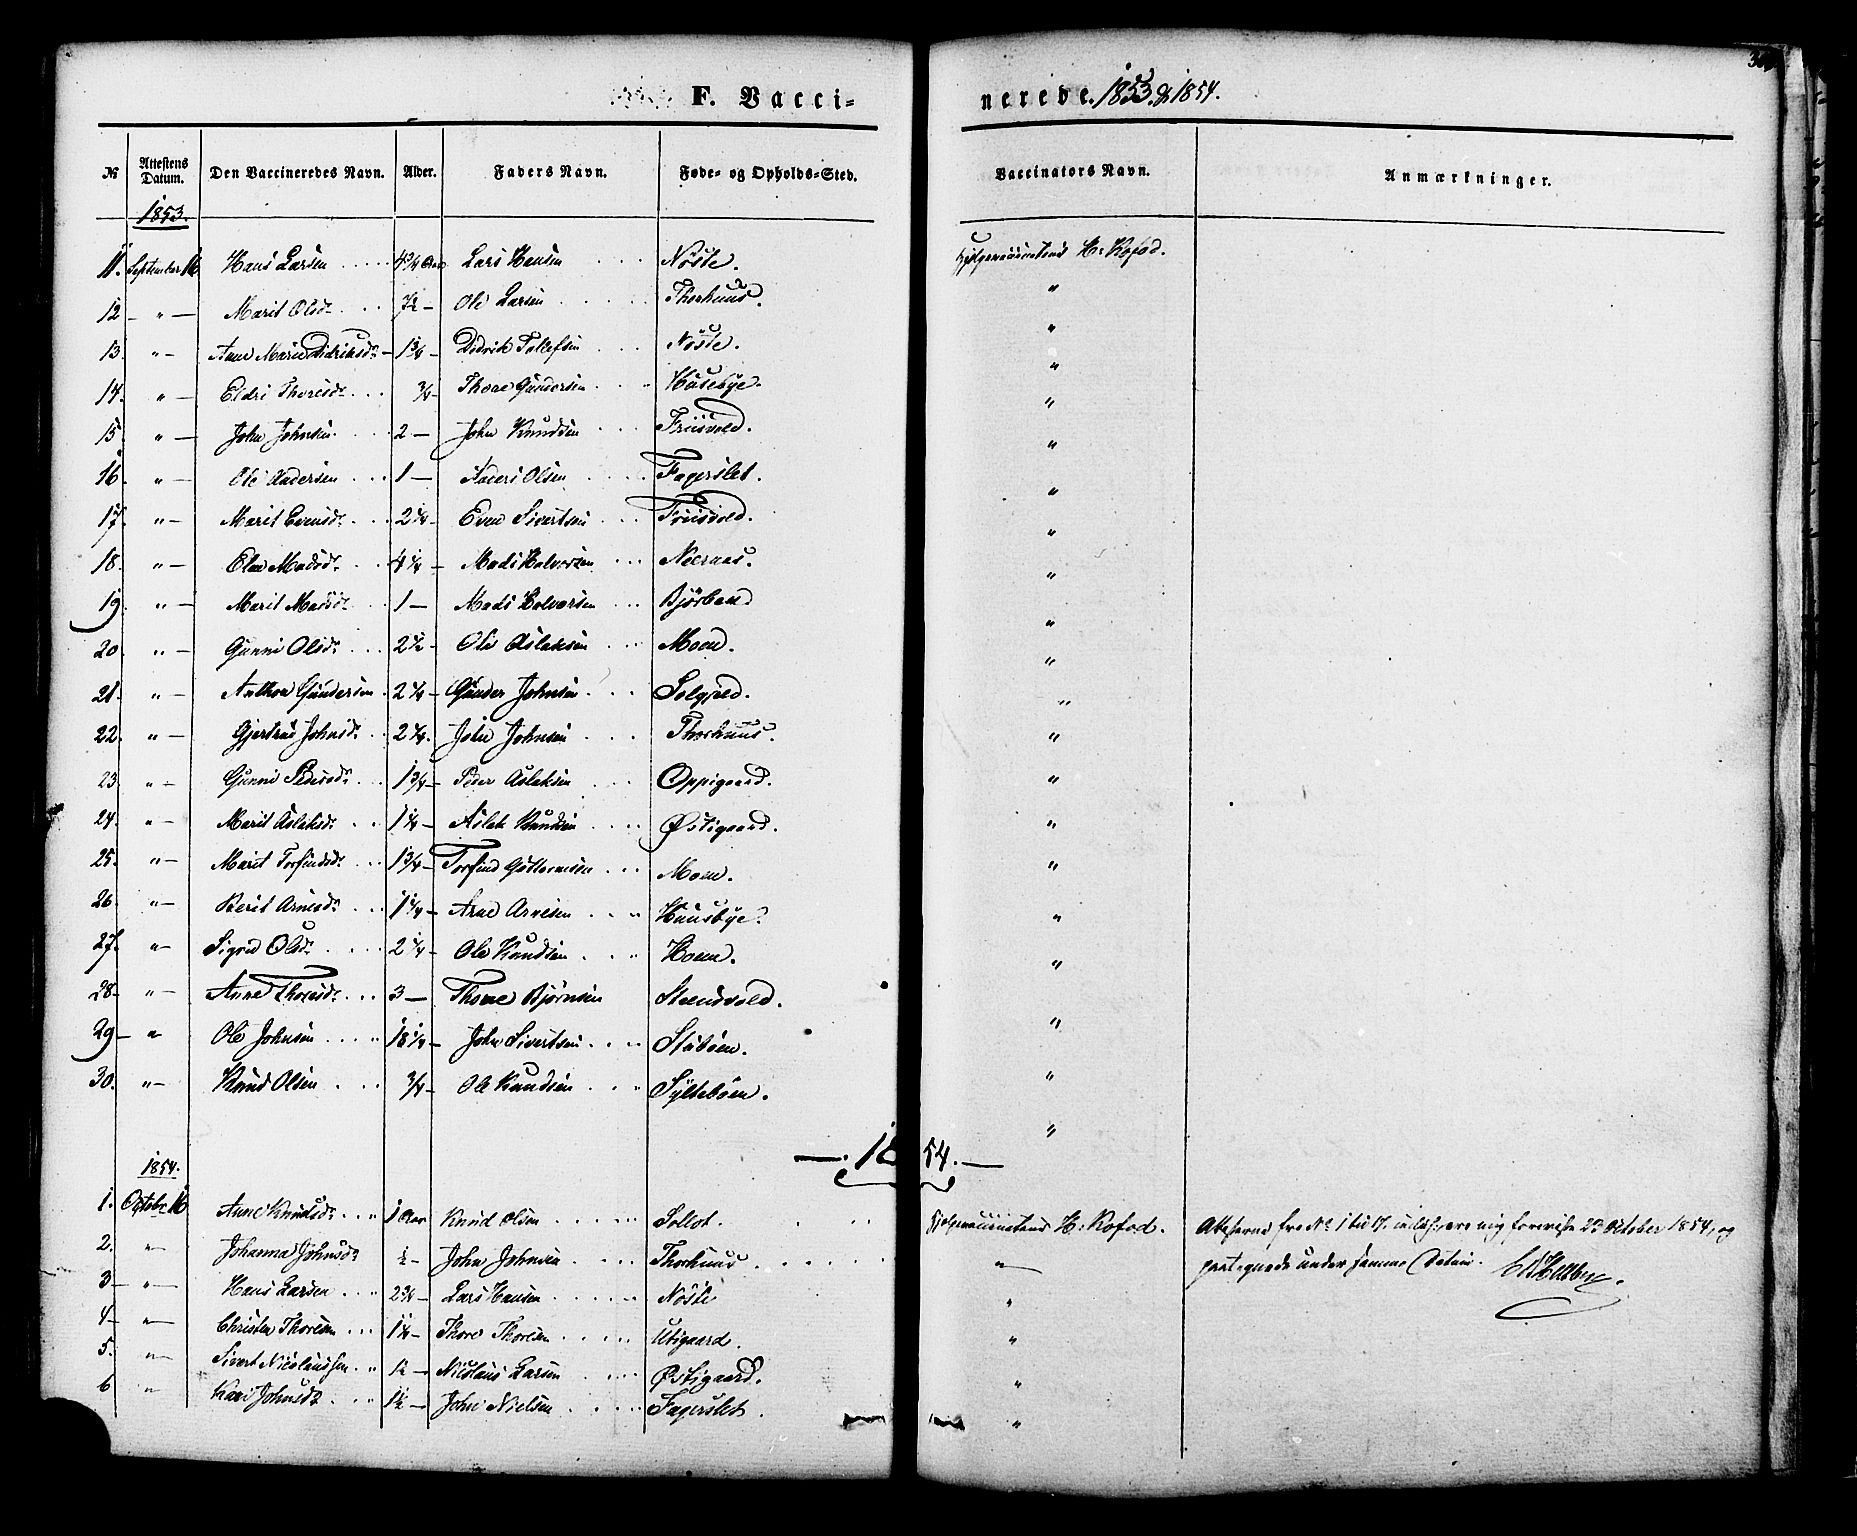 F. Vacci-
nerede. 1853. & 1854.
№ Attestens Datum. Den Vaccineredes Navn. Alder. Faders Navn. Føde- og Opholds-Sted. Vaccinators Navn. Anmærkninger.
1853.
11. September 16 Hans Larsen 4 3/4 Aar Lars Hansen Nöste. H: Kofod.
12 " Marit Olsdr 7 1/2 Ole Larsen Thorhuus. "
13. " Anne Marie Didriksdr 1 3/4 Didrik Tollefsen Nöste. "
14. " Eldri Thoresdr 3/4 Thore Gundersen Husebye. "
15 " John Johnsen 2 John Knudsen Friisvold. "
16. " Ole Andersen 1 Anders Olsen Fagerslet. "
17. " Marit Evensdr 2 1/4 Even Sivertsen Friisvold. "
18. " Madsdr 4 1/4 Mads Halvorsen Neeraas. "
19. " Marit Madsdr 1 Mads Halvorsen "
20. " Gunni Olsdr 2 1/2 Ole Aslaksen Moen. "
21. " Anthon Gundersen 2 1/4 Gunder Johnsen Solgjeld. "
22. " Gjertrud Johnsdr 2 1/4 John Johnsen Thorhuus. "
23. " Gunni Pedersdr 1 3/4 Peder Aslaksen Oppigaard. "
24. " Marit Aslaksdr 1 1/4 Aslak Knudsen Østigaard. "
25. " Marit Torfindsdr 1 3/4 Torfind Guttormsen Moen. "
26. " Berit Arnesdr 1 1/4 Arne Arnesen Huusbye. "
27. " Sigrid Olsdr 2 1/4 Ole Knudsen Hoem. "
28. " Anne Thoresdr 3 Thore Bjørnsen "
29 " Ole Johnsen 18 1/4 John Sivertsen Stuböen. "
30. " Knud Olsen 3/4 Ole Knudsen Sylteböen. "
1854.
1854.
1. Octobr 16 Anne Knudsdr 1 Aar Knud Olsen H: Kofod. Attesterne fra No 1 til 17. foreviste 23 October 1854, og
2. " Johanna Johnsdr 1/2 John Johnsen Thorhuus " under samme Datum.
3 " Hans Larsen 2 3/4 Lars Hansen Nöste "
4 " Christen Thoresen 1 1/4 Thore Thoresen Utigaard. "
5. " Sivert Nicolaussen 1 1/2 Nicolaus Larsen Østigaard. "
6 " Kari Johnsdr 1 1/2 John Nielsen Fagerslet. "